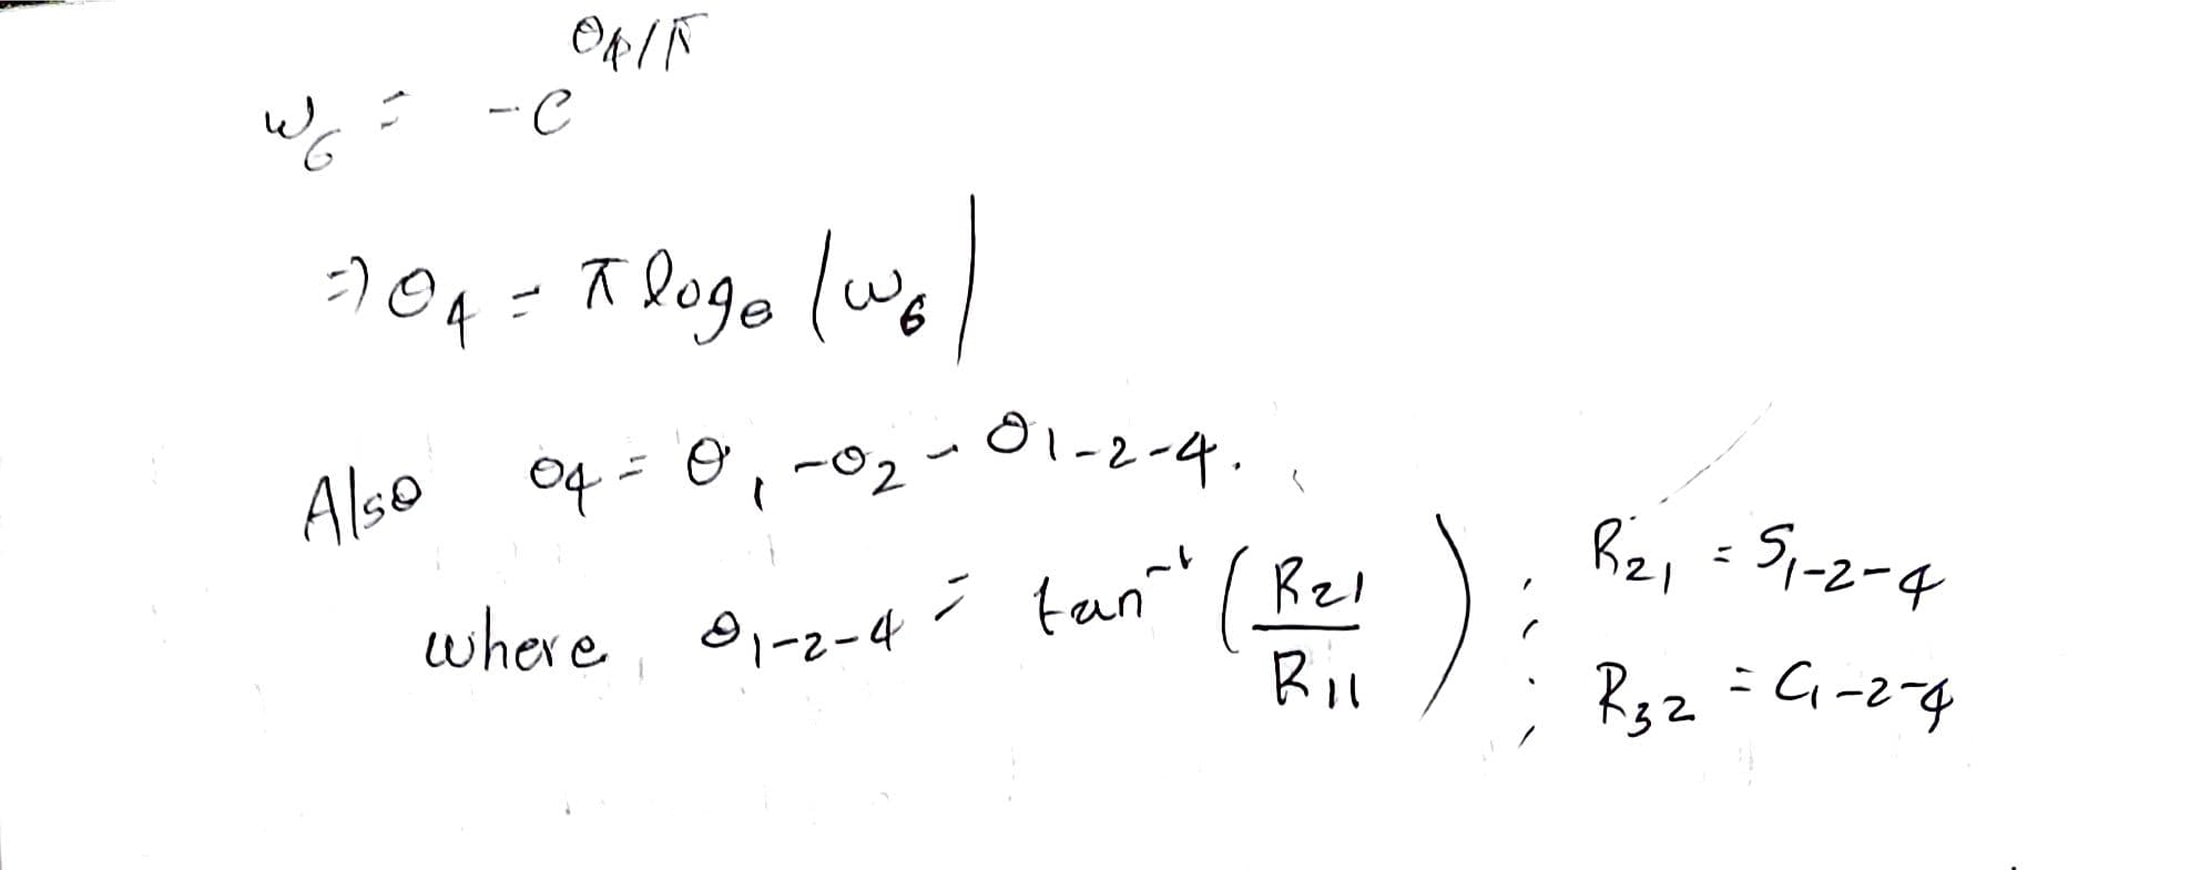 w₆ = -e^(θ₄/π)
⇒ θ₄ = π logₑ |w₆|
Also θ₄ = θ₁ - θ₂ - θ₁₋₂₋₄.
where, θ₁₋₂₋₄ = tan⁻¹ (R₂₁ / R₁₁) ; R₂₁ = S₁₋₂₋₄
; R₃₂ = C₁₋₂₋₄